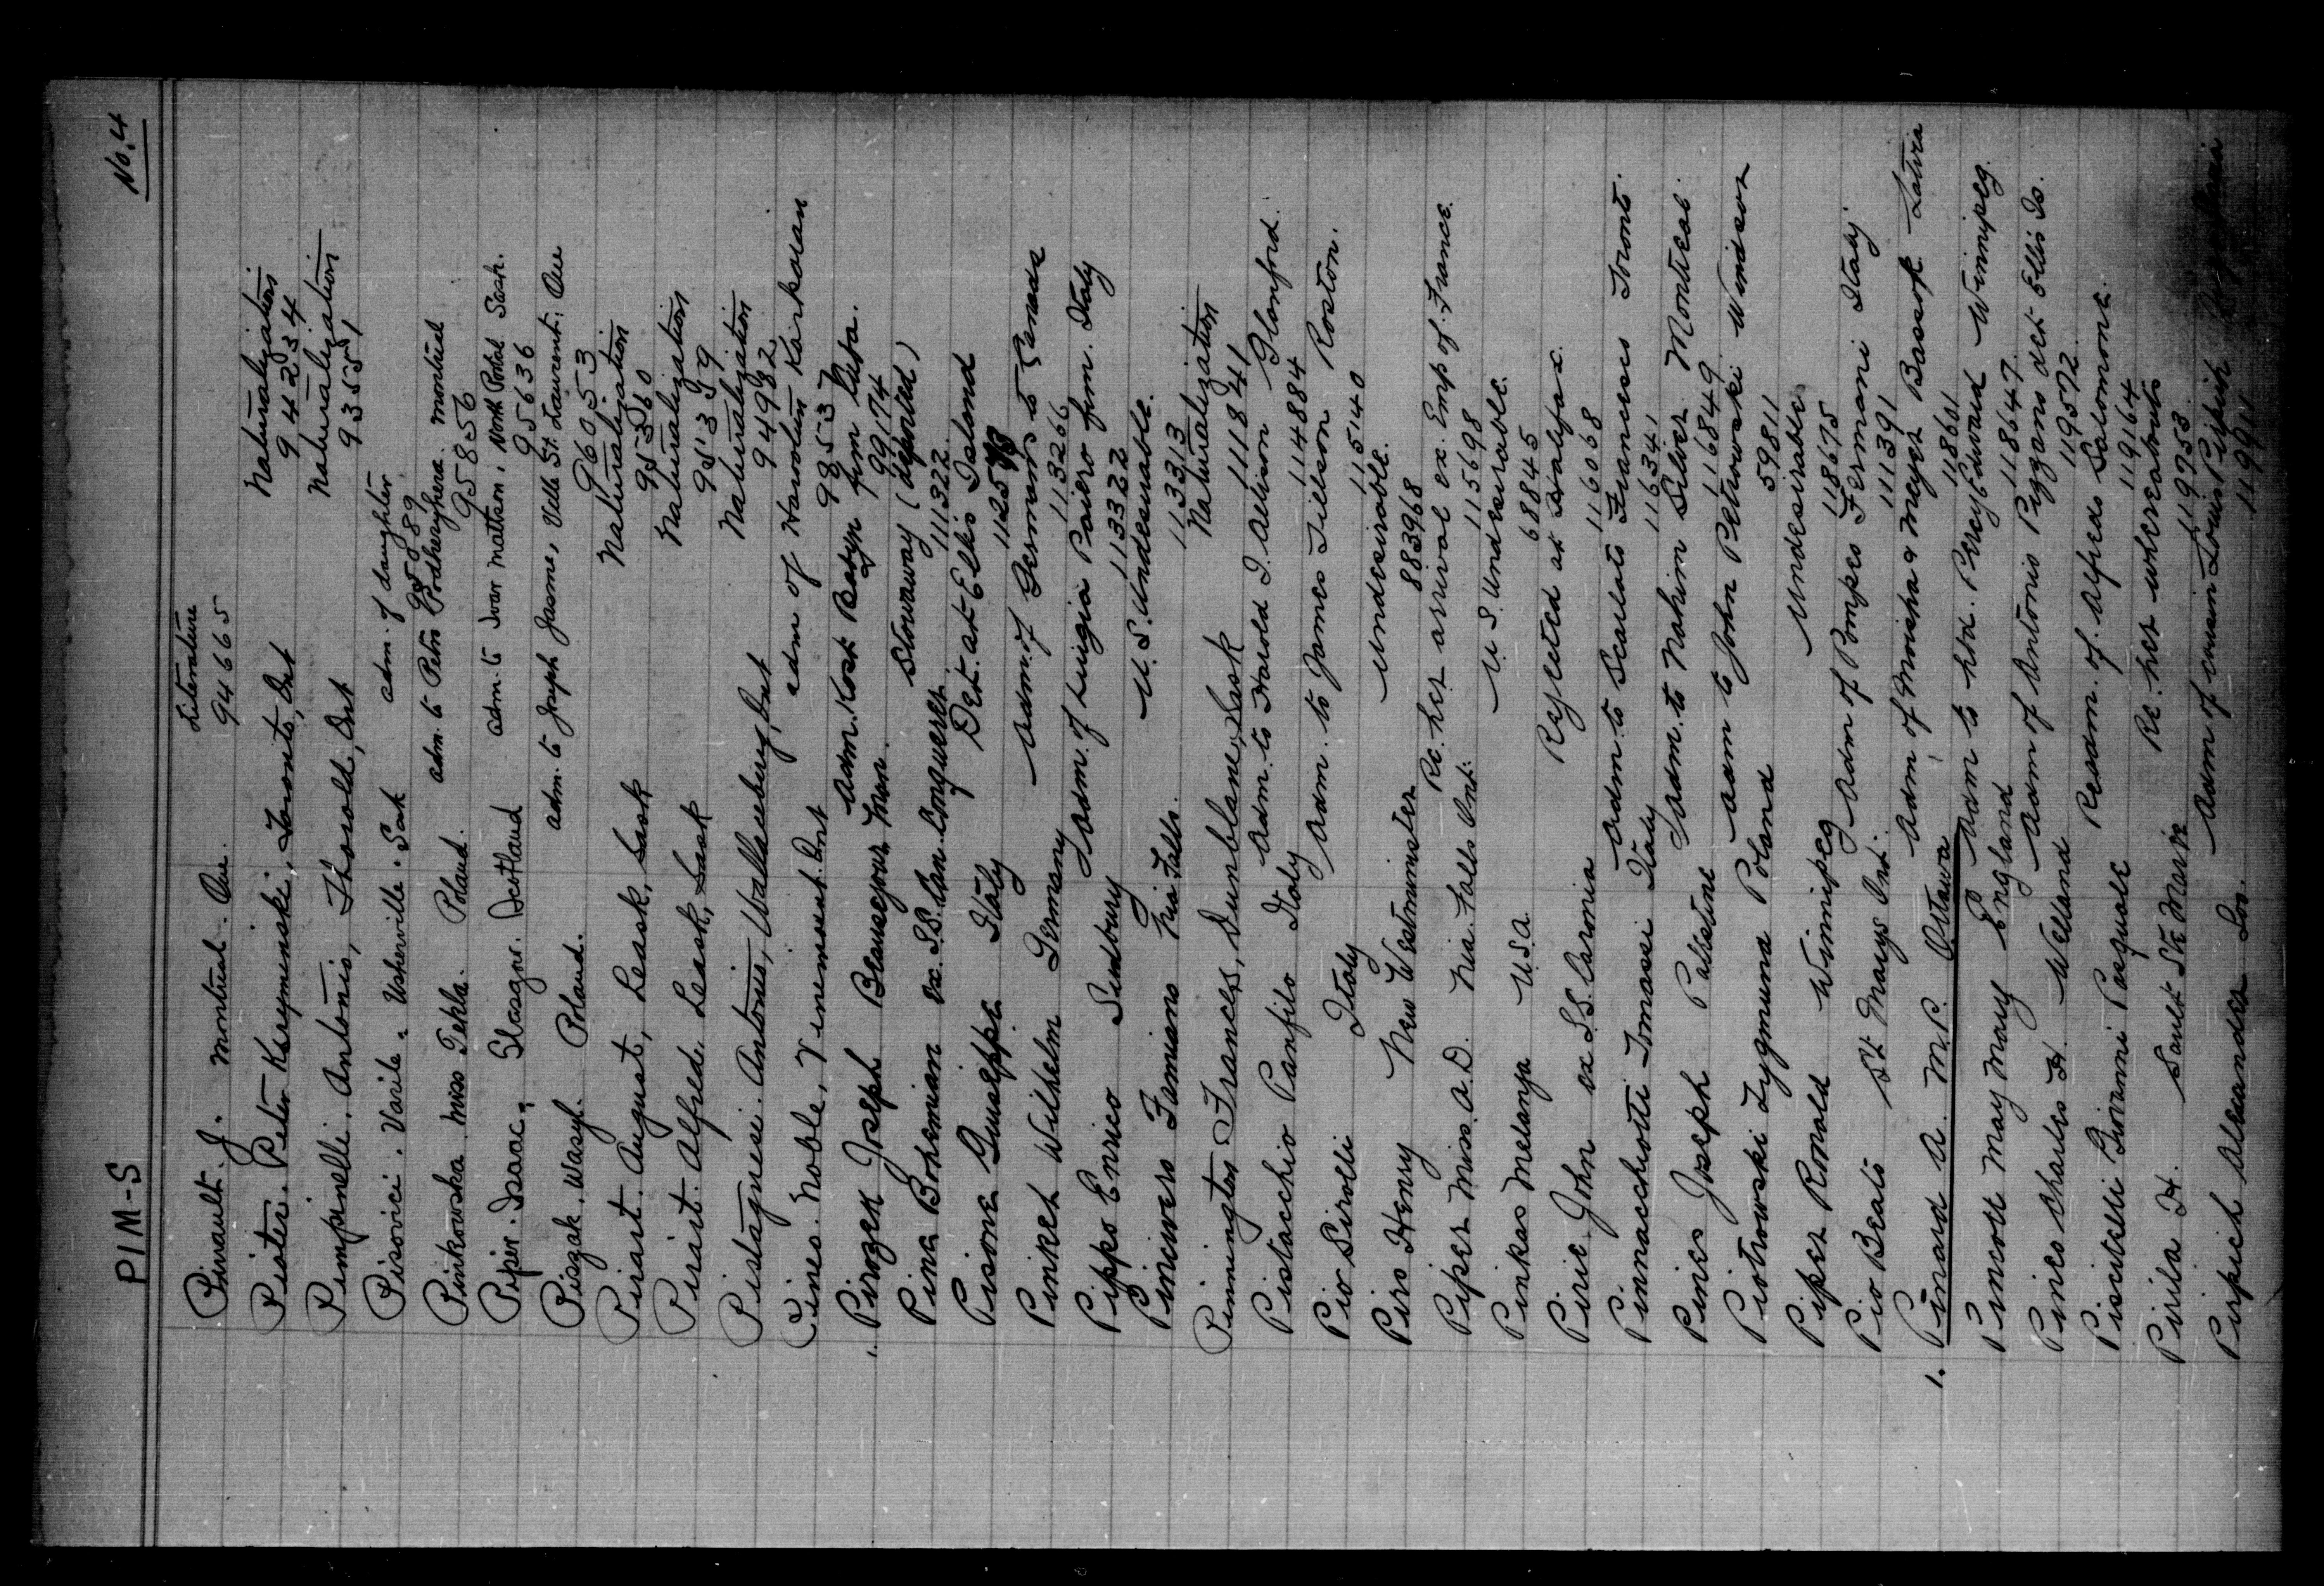 PIM-S No. 4
Pinault. J. Montreal. Que. Literature
94665
Pister. Peter Krzyminski, Toronto, Ont Naturalization
94234
Pimpinelli. Antonio, Thorold, Ont Naturalization
93551
Pisovici. Vasile. Usherville. Sask adm. of daughter
95589
Pinkowska. Miss Tekla. Poland. adm. to Petro Podhenghera. Montreal
95856
Piper. Isaac. Glasgow. Scotland adm. to Ivar Mattson, North Portal Sask.
95636
Piszak. Wasyl. Poland. adm. to Joseph Jasme, Ville St. Laurent, Que
96053
Pirart. August, Leask, Sask Naturalization
95360
Pirart. Alfred. Leask, Sask Naturalization
95359
Pistagnesi. Antonio, Wallaceburg, Ont Naturalization
94982
Pines. Noble, Vinemount. Ont adm of Haroolun Kairkoian
98537
1. Pirozek Joseph Beausejour Man. Adm. Kost Batyn from Russia.
99174
Pina Bohemian ex. S.S. Can. Conqueror Stowaway (deported)
111322
Pisone Guiseppe Italy Det. at Ellis Island
112598
Pinker Wilhelm Germany Adm. of Germans to Canada
113266
Pippo Enrico Sudbury Adm. of Luigia Paiero from. Italy
113322
Pincivero Famiano Nia Falls. U.S. Undesirable.
113313
Pinnington Frances, Dunblane, Sask Naturalization
111841
Pistacchio Panfilo Italy Adm. to Harold I. Allison Glanford.
114884
Pio Sirolli Italy Adm. to James Tillson Roston.
115140
Pirs Henry New Westminster Undesirable.
883968
Piper Miss. A.D. Nia. Falls Ont. Re. her arrival ex. Emp of. France.
115698
Pinkas Melanya U.S.A. U.S. Undesirable.
68845
Pirie John ex S.S. Caronia Rejected at Halifax.
116068
Pinnacchiotti Tomassi Italy Adm. to Scalato Francesco Toronto.
116341
Pines Joseph Palestine Adm. to Nahum Silver Montreal.
116849
Piotrowski Zygmund Poland Adm to John Petrowski Windsor
59811
Piper Ronald Winnipeg Undesirable.
118675
Pio Beato St. Marys Ont. Adm of Pompeo Fermani Italy
111391
1. Pinard A. M.P. Ottawa Adm of Moisha & Meyer Bassok Latvia
118601
Pincott May Mary England Adm to hbd. Percy Edward Winnipeg.
118647
Pines Charles H. Welland Adm of Antonio Pizzans det Ellis Is.
119572
Piscitelli Giovanni Pasquale Readm. of. Alfredo Salomone.
119164
Pirila H. Sault Ste Marie Re. her whereabouts
119753
Pirpich Alexander Adm of cousin Louis Pirpich